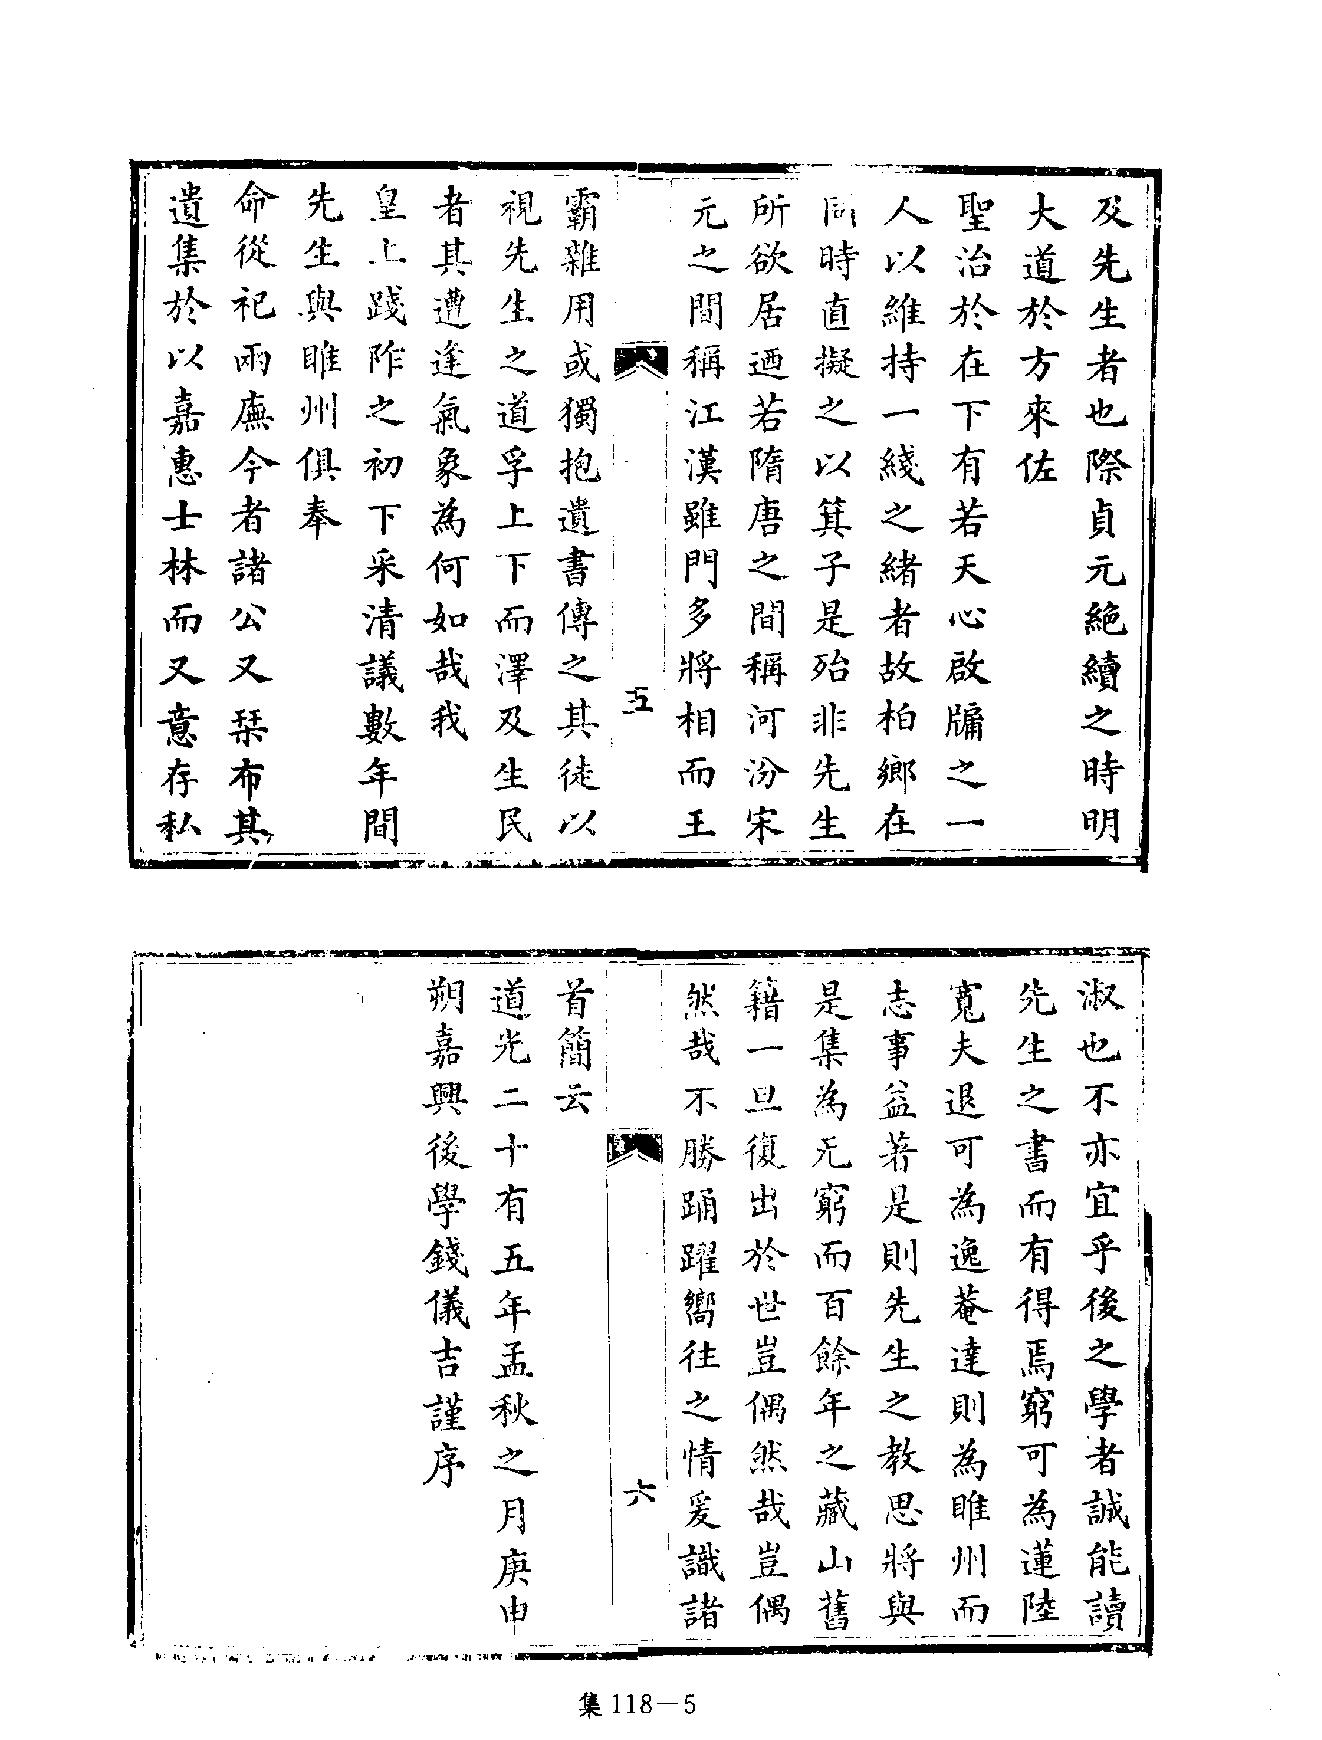 及先生者也際貞元絕續之時明
大道於方來佐
聖治於在下有若天心啟牖之一
人以維持一綫之緒者故柏鄉在
同時直擬之以箕子是殆非先生
所欲居迺若隋唐之間稱河汾宋
元之間稱江漢雖門多將相而王
五
霸雜用或獨抱遺書傳之其徒以
視先生之道孚上下而澤及生民
者其遭逢氣象為何如哉我
皇上踐阼之初下采清議數年間
先生與睢州俱奉
命從祀兩廡今者諸公又栞布其
遺集於以嘉惠士林而又意存私
淑也不亦宜乎後之學者誠能讀
先生之書而有得焉窮可為蓮陸
寬夫退可為逸菴達則為睢州而
志事益著是則先生之教思將與
是集為无窮而百餘年之藏山舊
籍一旦復出於世豈偶然哉豈偶
然哉不勝踊躍嚮往之情爰識諸
六
首簡云
道光二十有五年孟秋之月庚申
朔嘉興後學錢儀吉謹序
集118－5